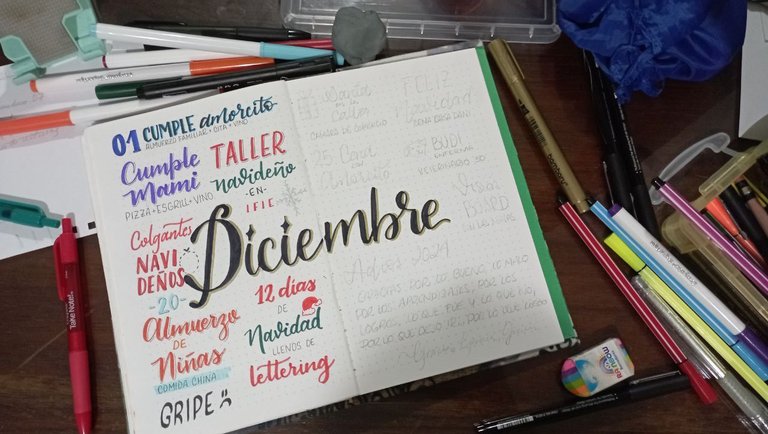 01 CUMPLE amorcito
ALMUERZO FAMILIAR + CITA + VINO
Cumple
Mami
PIZZA + ESGRILL + VINO
TALLER
Navideño
- EN -
IFIE
Colgantes
NAVI
DEÑOS
Diciembre
- 20 -
Almuerzo
DE
Niñas
COMIDA CHINA
GRIPE
12 días
DE
Navidad
LLENOS DE
lettering
CAMARA DE COMERCIO
FELIZ
Navidad
CENA CASA DANI
25 Cena
con
Amorcito
BUDI
ENFERMA
VETERINARIO
Vision
BOARD
Adiós 2024
GRACIAS POR LO BUENO, LO MALO
POR LOS APRENDIZAJES, POR LOS
LOGROS, LO QUE FUE Y LO QUE NO,
POR LO QUE DEJO IR, POR LO QUE
Gracias, Gracias, Gracias
Take Note!